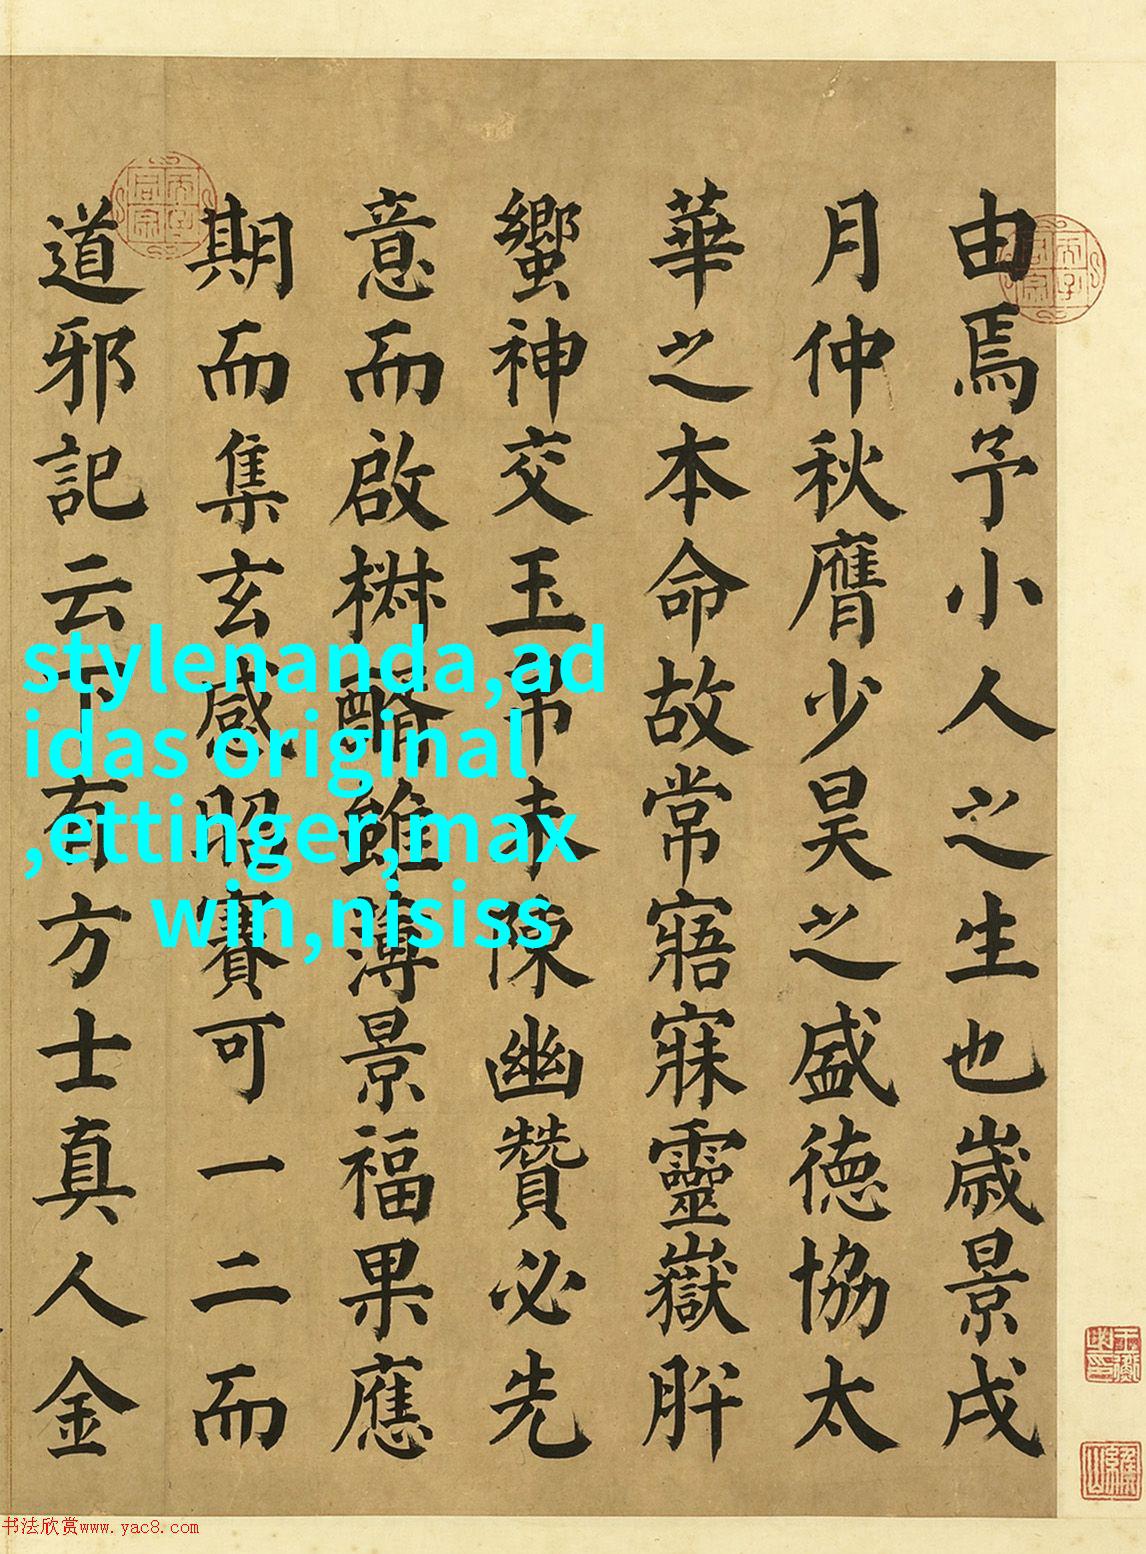 由焉予小人之生也歲景戌
月仲秋膺少昊之盛德協太
華之本命故常寤寐靈嶽肸
蠁神交玉帛未陳幽贊必先
意而啟椒醑雖薄景福果應
期而集玄感昭賽可一二而
道邪記云下有方士真人金
stylenanda,ad
idas original
,ettinger,max
win,nisiss
书法欣赏www.yac8.com